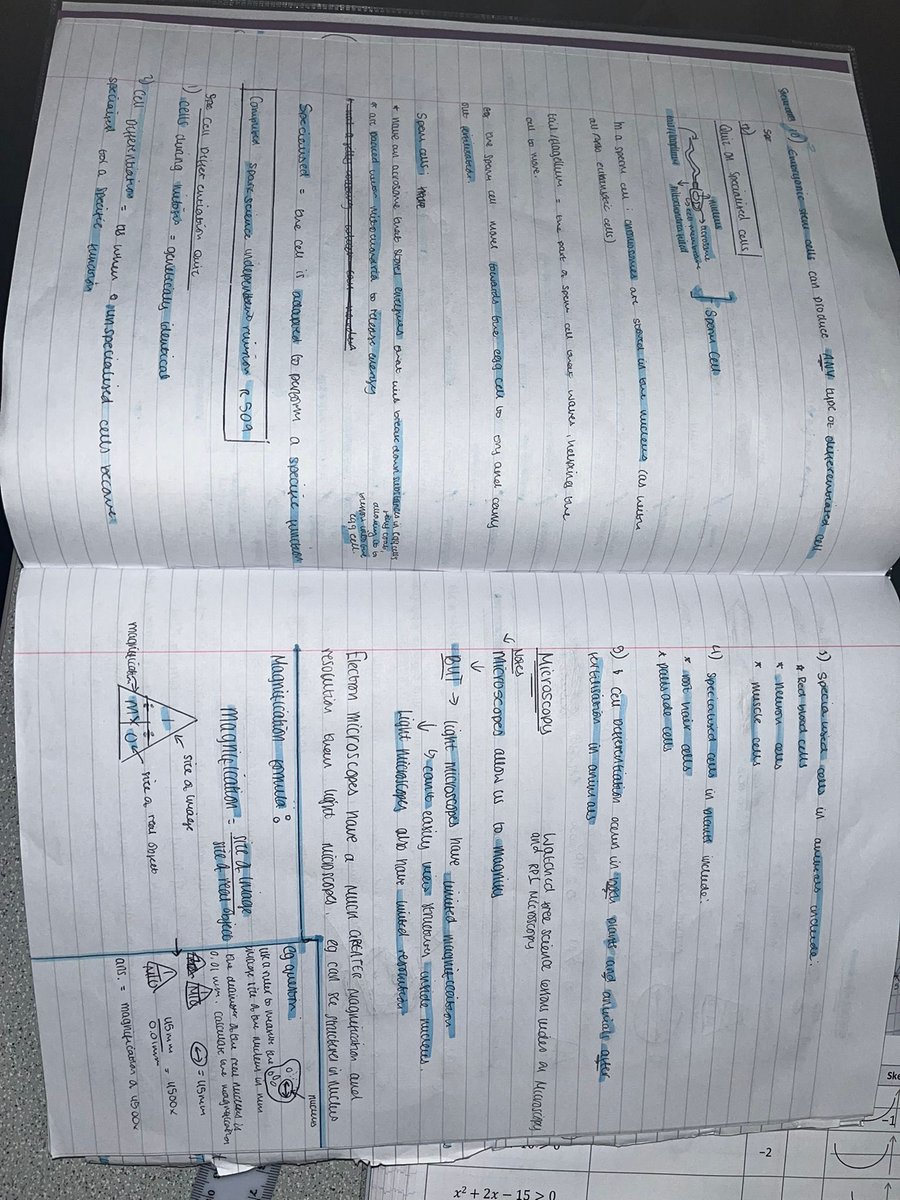 10) Embryonic stem cells can produce ANY type of differentiated cell
Quiz on Specialised cells
nucleus
acrosome
cell membrane
mitochondria
tail/flagellum
} Sperm cell
In a sperm cell chromosomes are stored in the nucleus (as with
all eukaryotic cells)
tail/flagellum = the part of a sperm cell that waves, helping the
cell to move.
the sperm cell move towards the egg cell to try and carry
out fertilisation
Sperm cells
* have an acrosome that stores enzymes that will break down substances in egg cells
allowing it to
egg cell.
* are packed with mitochondria to release energy
Specialised = the cell is adapted to perform a specific function
Completed spark science independent revision R S09
Cell Differentiation Quiz
1) cells during mitosis = genetically identical
2) Cell Differentiation = is when a unspecialised cells become
specialised for a specific function
3) Specialised cells in animals include:
* Red blood cells
* neuron cells
* muscle cells
4) Specialised cells in plants include:
* root hair cells
* palisade cells
Cell differentiation occurs in both plants and animals after
fertilisation in animals
Microscopy
Watched free science lessons video on Microscopy
and RPI Microscopy
Notes
↓ Microscopes allow us to magnify
↓
BUT → light microscopes have limited magnification
↓ ↳ can't easily view structures inside nucleus.
Light microscopes also have limited resolution
Electron microscopes have a much GREATER magnification and
resolution then light microscopes. eg can see structures in nucleus
Magnification formula:
Magnification = size of image
size of real object
size of image
I
M X O
magnification
size of real object
eg question
nucleus
use a ruler to measure the
image size of the nucleus in mm
the diameter of the real nucleus is
0.01 mm. calculate the magnification
= 45mm
45mm
0.01mm = 4500x
ans. = magnification of 4500x
Ske
-1
-2
x² + 2x − 15 > 0